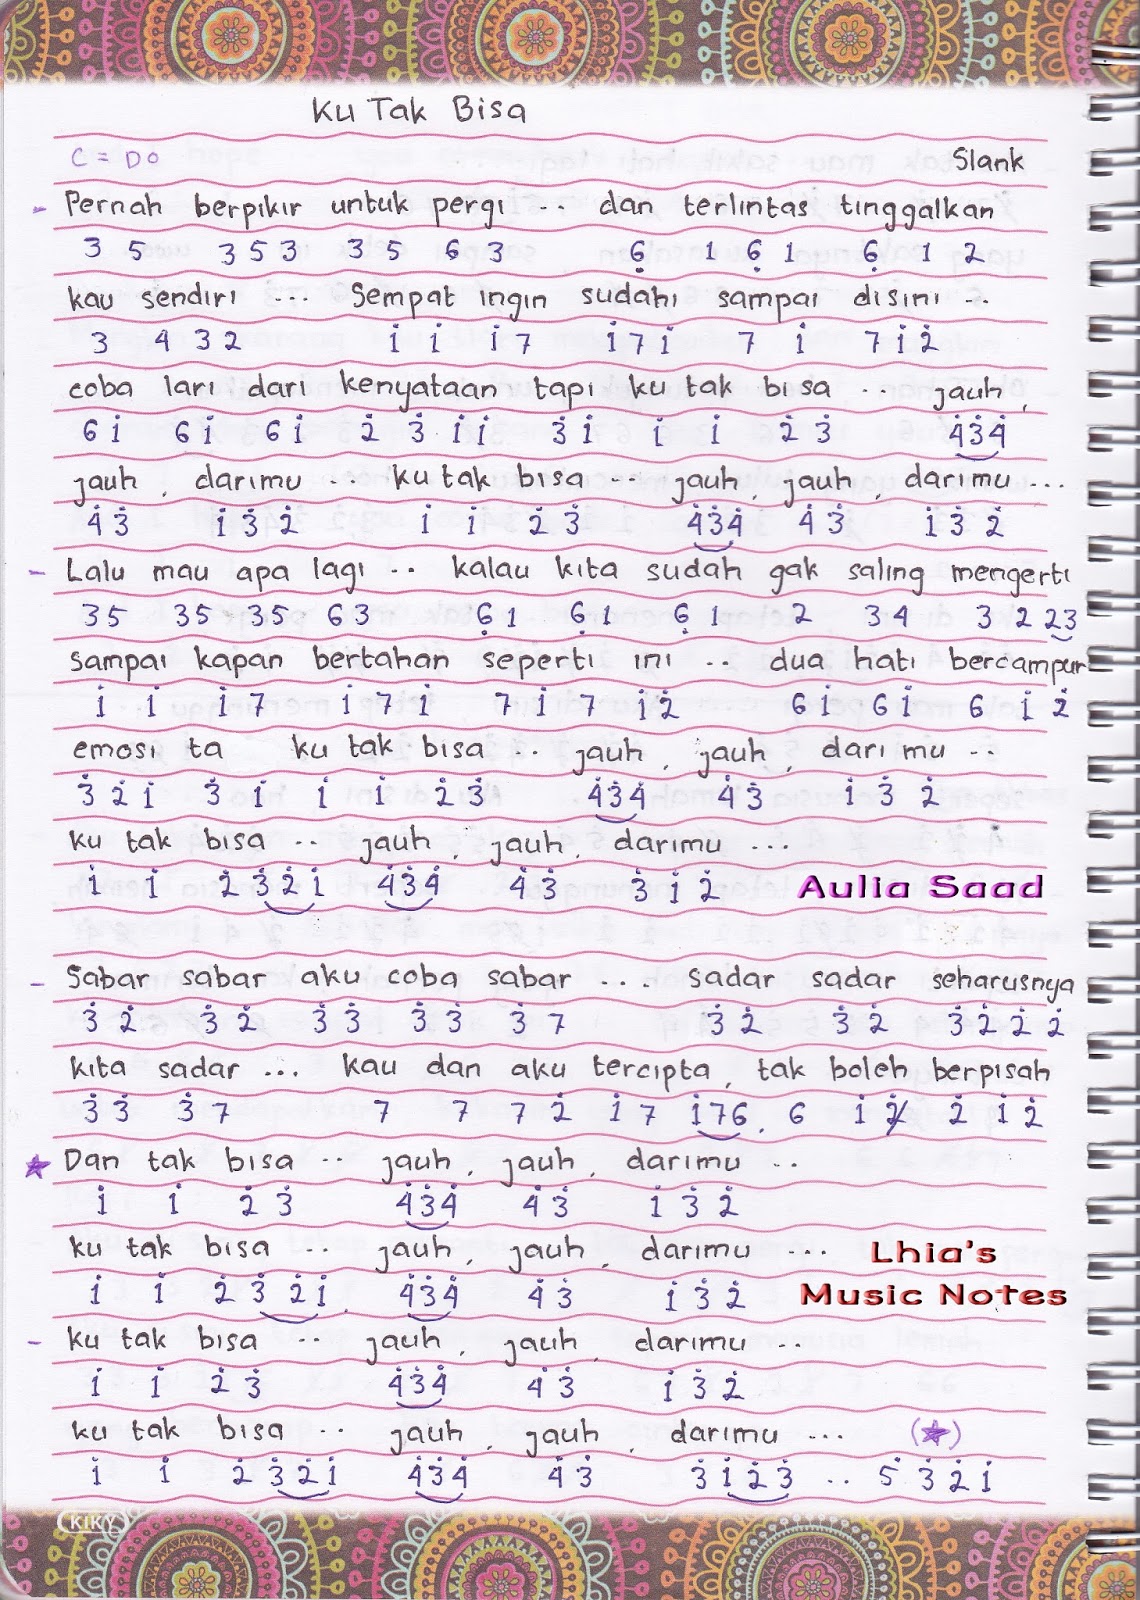 Ku Tak Bisa
C = Do Slank
- Pernah berpikir untuk pergi .. dan terlintas tinggalkan
3 5 3 5 3 3 5 6 3 6̣ 1 6̣ 1 6̣ 1 2
kau sendiri ... Sempat ingin sudahi sampai disini ..
3 4 3 2 1̇ 1̇ 1̇ 7 1̇ 7 1̇ 7 1̇ 7 1̇ 2̇
coba lari dari kenyataan tapi ku tak bisa .. jauh,
6 1̇ 6 1̇ 6 1̇ 2̇ 3̇ 1̇ 1̇ 3̇ 1̇ 1̇ 1̇ 2̇ 3̇ 4̇ 3̇ 4̇
jauh, darimu .. ku tak bisa .. jauh, jauh, darimu ...
4̇ 3̇ 1̇ 3̇ 2̇ 1̇ 1̇ 2̇ 3̇ 4̇ 3̇ 4̇ 4̇ 3̇ 1̇ 3̇ 2̇
- Lalu mau apa lagi .. kalau kita sudah gak saling mengerti
3 5 3 5 3 5 6 3 6̣ 1 6̣ 1 6̣ 1 2 3 4 3 2 2 3
sampai kapan bertahan seperti ini .. dua hati bercampur
1̇ 1̇ 1̇ 7 1̇ 7 1̇ 7 1̇ 7 1̇ 2̇ 6 1̇ 6 1̇ 6 1̇ 2̇
emosi ta ku tak bisa .. jauh, jauh, darimu ..
3̇ 2̇ 1̇ 3̇ 1̇ 1̇ 1̇ 2̇ 3̇ 4̇ 3̇ 4̇ 4̇ 3̇ 1̇ 3̇ 2̇
ku tak bisa .. jauh, jauh, darimu ...
1̇ 1̇ 2̇ 3̇ 2̇ 1̇ 4̇ 3̇ 4̇ 4̇ 3̇ 3̇ 1̇ 2̇ Aulia Saad
- Sabar sabar aku coba sabar ... sadar sadar seharusnya
3̇ 2̇ 3̇ 2̇ 3̇ 3̇ 3̇ 3̇ 3̇ 7 3̇ 2̇ 3̇ 2̇ 3̇ 2̇ 2̇ 2̇
kita sadar ... kau dan aku tercipta, tak boleh berpisah
3̇ 3̇ 3̇ 7 7 7 7 2̇ 1̇ 7 1̇ 7 6 . 6 1̇ 2̇ 2̇ 1̇ 2̇
★ Dan tak bisa .. jauh, jauh, darimu ..
1̇ 1̇ 2̇ 3̇ 4̇ 3̇ 4̇ 4̇ 3̇ 1̇ 3̇ 2̇
ku tak bisa .. jauh, jauh, darimu ... Lhia's
1̇ 1̇ 2̇ 3̇ 2̇ 1̇ 4̇ 3̇ 4̇ 4̇ 3̇ 1̇ 3̇ 2̇ Music Notes
- ku tak bisa .. jauh, jauh, darimu ..
1̇ 1̇ 2̇ 3̇ 4̇ 3̇ 4̇ 4̇ 3̇ 1̇ 3̇ 2̇
ku tak bisa .. jauh, jauh, darimu ... (★)
1̇ 1̇ 2̇ 3̇ 2̇ 1̇ 4̇ 3̇ 4̇ 4̇ 3̇ 3̇ 1̇ 2̇ 3̇ .. 5̇ 3̇ 2̇ 1̇
KIKY